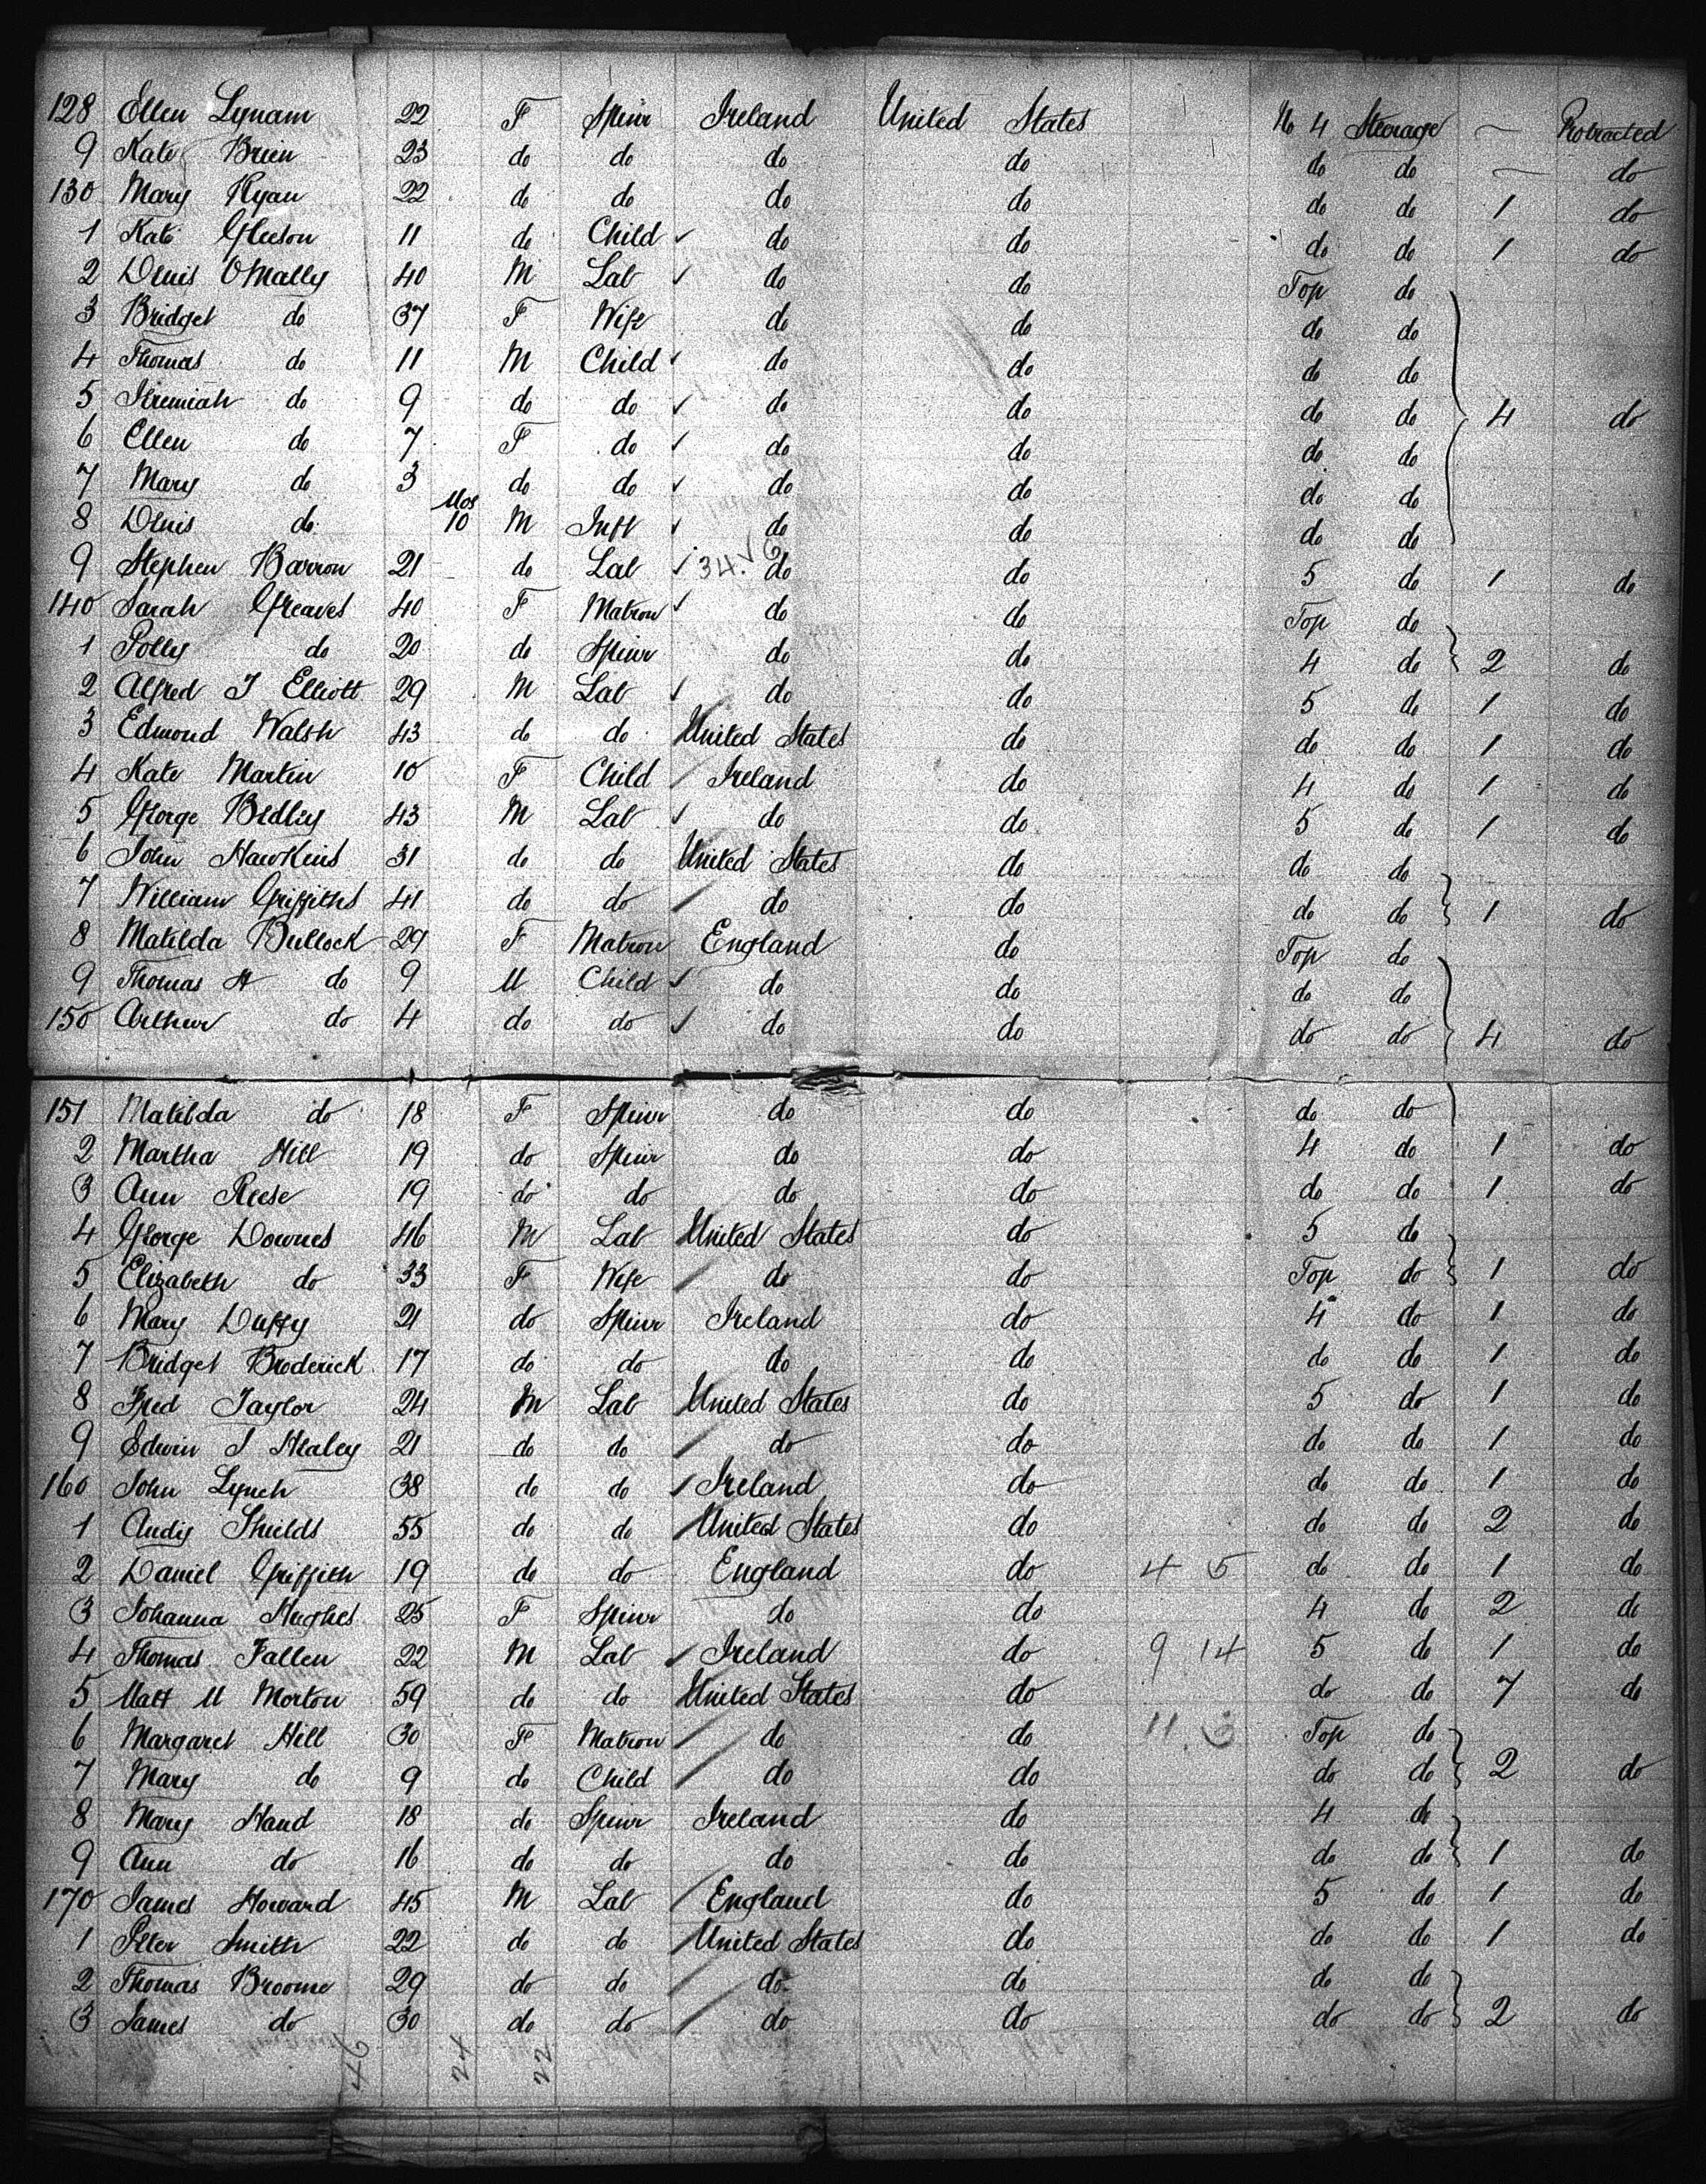 128 Ellen Lynam 22 F Spinr Ireland United States No 4 Steerage — Protracted
9 Kate Brien 23 do do do do do do — do
130 Mary Ryan 22 do do do do do do 1 do
1 Kate Gleeson 11 do Child ✓ do do do do 1 do
2 Denis OMally 40 M Lab ✓ do do Top do
3 Bridget do 37 F Wife do do do do
4 Thomas do 11 M Child ✓ do do do do
5 Jeremiah do 9 do do ✓ do do do do 4 do
6 Ellen do 7 F do ✓ do do do do
7 Mary do 3 do do ✓ do do do do
8 Denis do Mos 10 M Inft ✓ do do do do
9 Stephen Barron 21 do Lab ✓ 34. ✓ 6 do do 5 do 1 do
140 Sarah Greaves 40 F Matron ✓ do do Top do
1 Polly do 20 do Spinr do do 4 do 2 do
2 Alfred J Elliott 29 M Lab ✓ do do 5 do 1 do
3 Edmond Walsh 43 do do United States do do do 1 do
4 Kate Martin 10 F Child Ireland do 4 do 1 do
5 George Bedley 43 M Lab ✓ do do 5 do 1 do
6 John Hawkins 31 do do United States do do do
7 William Griffiths 41 do do do do do do 1 do
8 Matilda Bullock 29 F Matron England do Top do
9 Thomas H do 9 M Child ✓ do do do do
150 Arthur do 4 do do ✓ do do do do 4 do
151 Matilda do 18 F Spinr do do do do
2 Martha Hill 19 do Spinr do do 4 do 1 do
3 Ann Reese 19 do do do do do do 1 do
4 George Downes 46 M Lab United States do 5 do
5 Elizabeth do 33 F Wife do do Top do 1 do
6 Mary Duffy 21 do Spinr Ireland do 4 do 1 do
7 Bridget Broderick 17 do do do do do do 1 do
8 Fred Taylor 24 M Lab United States do 5 do 1 do
9 Edwin J Healey 21 do do do do do do 1 do
160 John Lynch 38 do do ✓ Ireland do do do 1 do
1 Andy Shields 55 do do United States do do do 2 do
2 Daniel Griffith 19 do do England do 4 5 do do 1 do
3 Johanna Hughes 25 F Spinr do do 4 do 2 do
4 Thomas Fallen 22 M Lab ✓ Ireland do 9 14 5 do 1 do
5 Matt M Morton 59 do do United States do do do 7 do
6 Margaret Hill 30 F Matron do do 11 3 Top do
7 Mary do 9 do Child do do do do 2 do
8 Mary Hand 18 do Spinr Ireland do 4 do
9 Ann do 16 do do do do do do 1 do
170 James Howard 45 M Lab England do 5 do 1 do
1 Peter Smith 22 do do United States do do do 1 do
2 Thomas Broome 29 do do do do do do
3 James do 30 do do do do do do 2 do
46 24 22